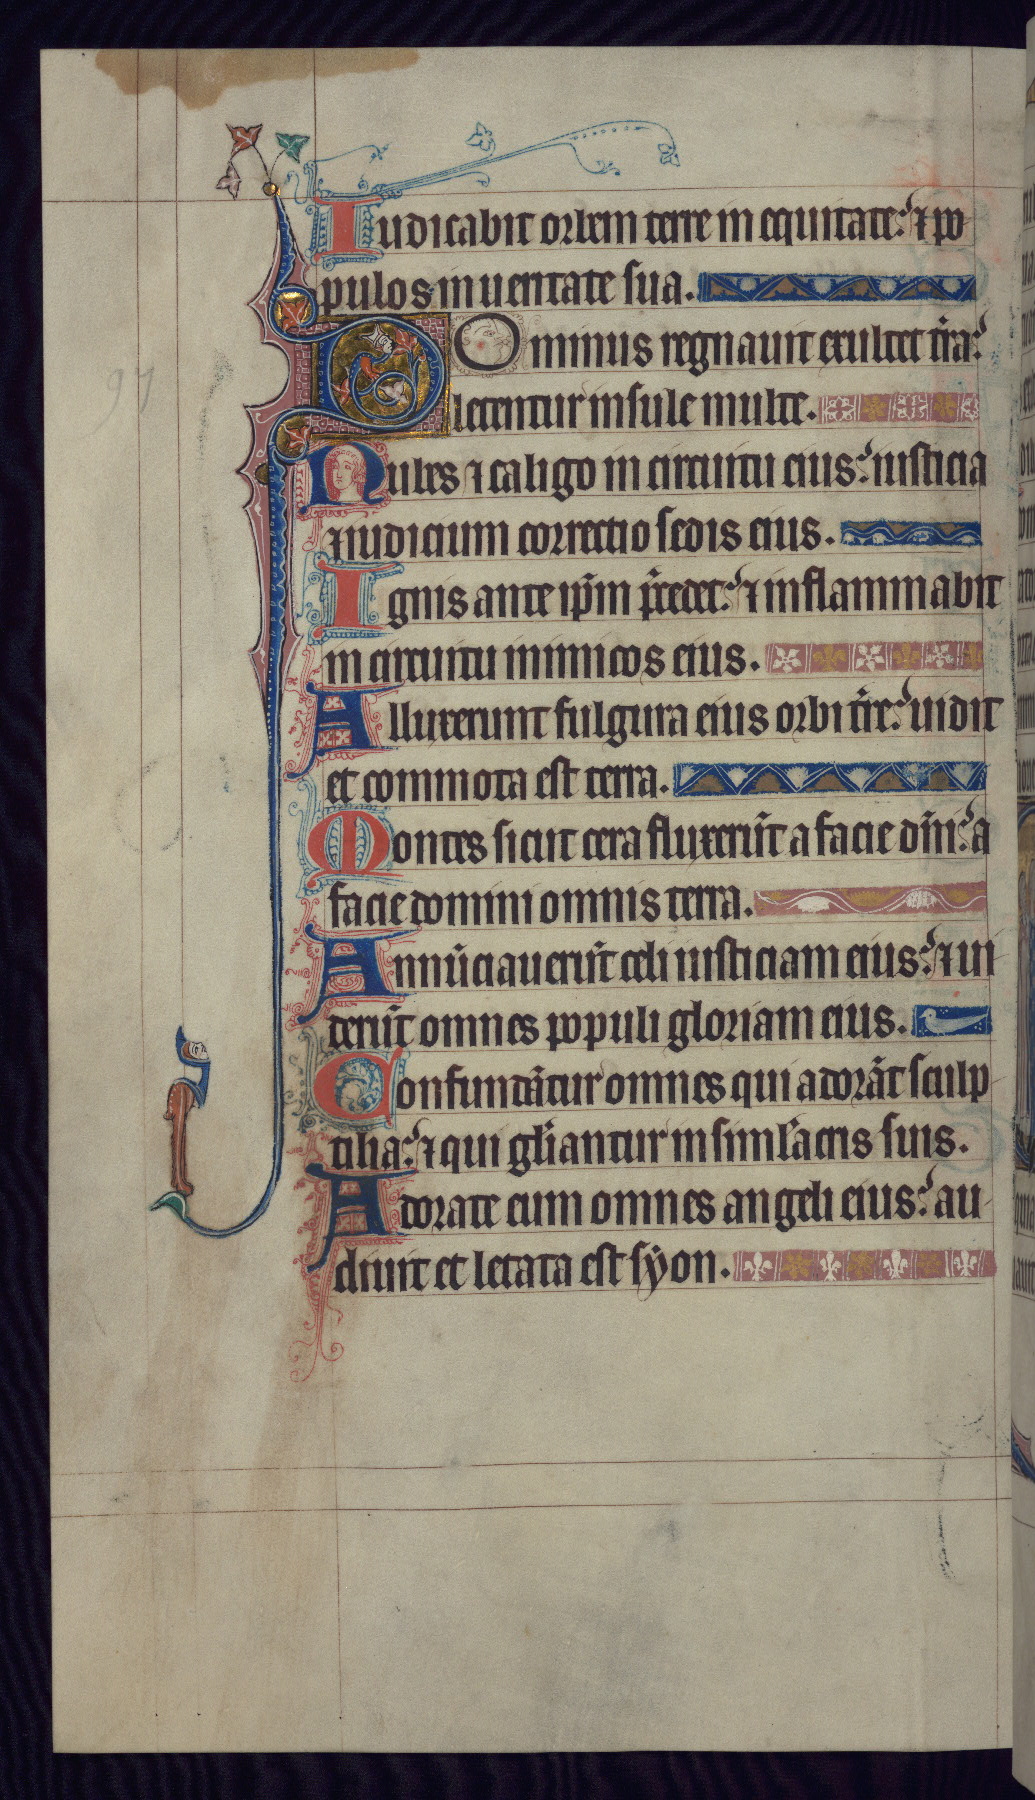 Iudicabit orbem terre in equitate: ⁊ po
pulos in ueritate sua.
DOminus regnauit exultet t̄ra:
letentur insule multe.
97
Nubes ⁊ caligo in circuitu eius: iusticia
⁊ iudicium correctio sedis eius.
Ignis ante ip̄m p̄cedet: ⁊ inflammabit
in circuitu inimicos eius.
Alluxerunt fulgura eius orbi t̄re: uidit
et commota est terra.
Montes sicut cera fluxerūt a facie dn̄i: a
facie domini omnis terra.
Annūciauerūt celi iusticiam eius: ⁊ ui
derūt omnes populi gloriam eius.
Confundātur omnes qui adorāt sculp
tilia: ⁊ qui gl̄iantur in siml̄acris suis.
Adorate eum omnes angeli eius: au
diuit et letata est syon.